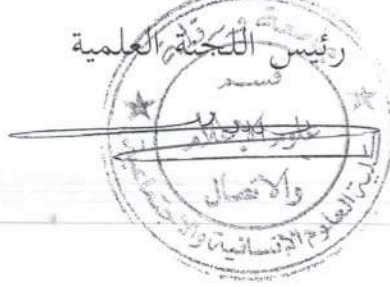 رئيس اللجنة العلمية
قسم
علوم الإعلام
والاتصال
كلية العلوم الإنسانية والاجتماعية